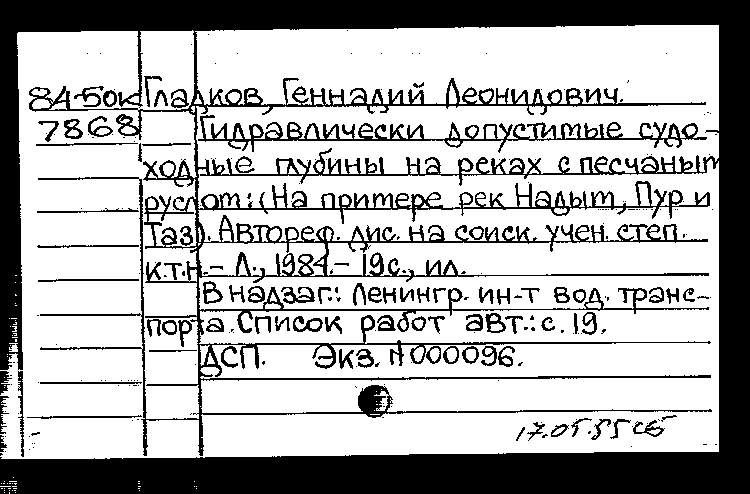 84-5ок Гладков, Геннадий Леонидович.
7868 Гидравлически допустимые судо-
ходные глубины на реках с песчаным
руслом: (На примере рек Надым, Пур и
Таз). Автореф. дис. на соиск. учен. степ.
к.т.н. - Л., 1984. - 19с., ил.
В надзаг.: Ленингр. ин-т вод. транс-
порта. Список работ авт.: с. 19.
ДСП. Экз. N000096.